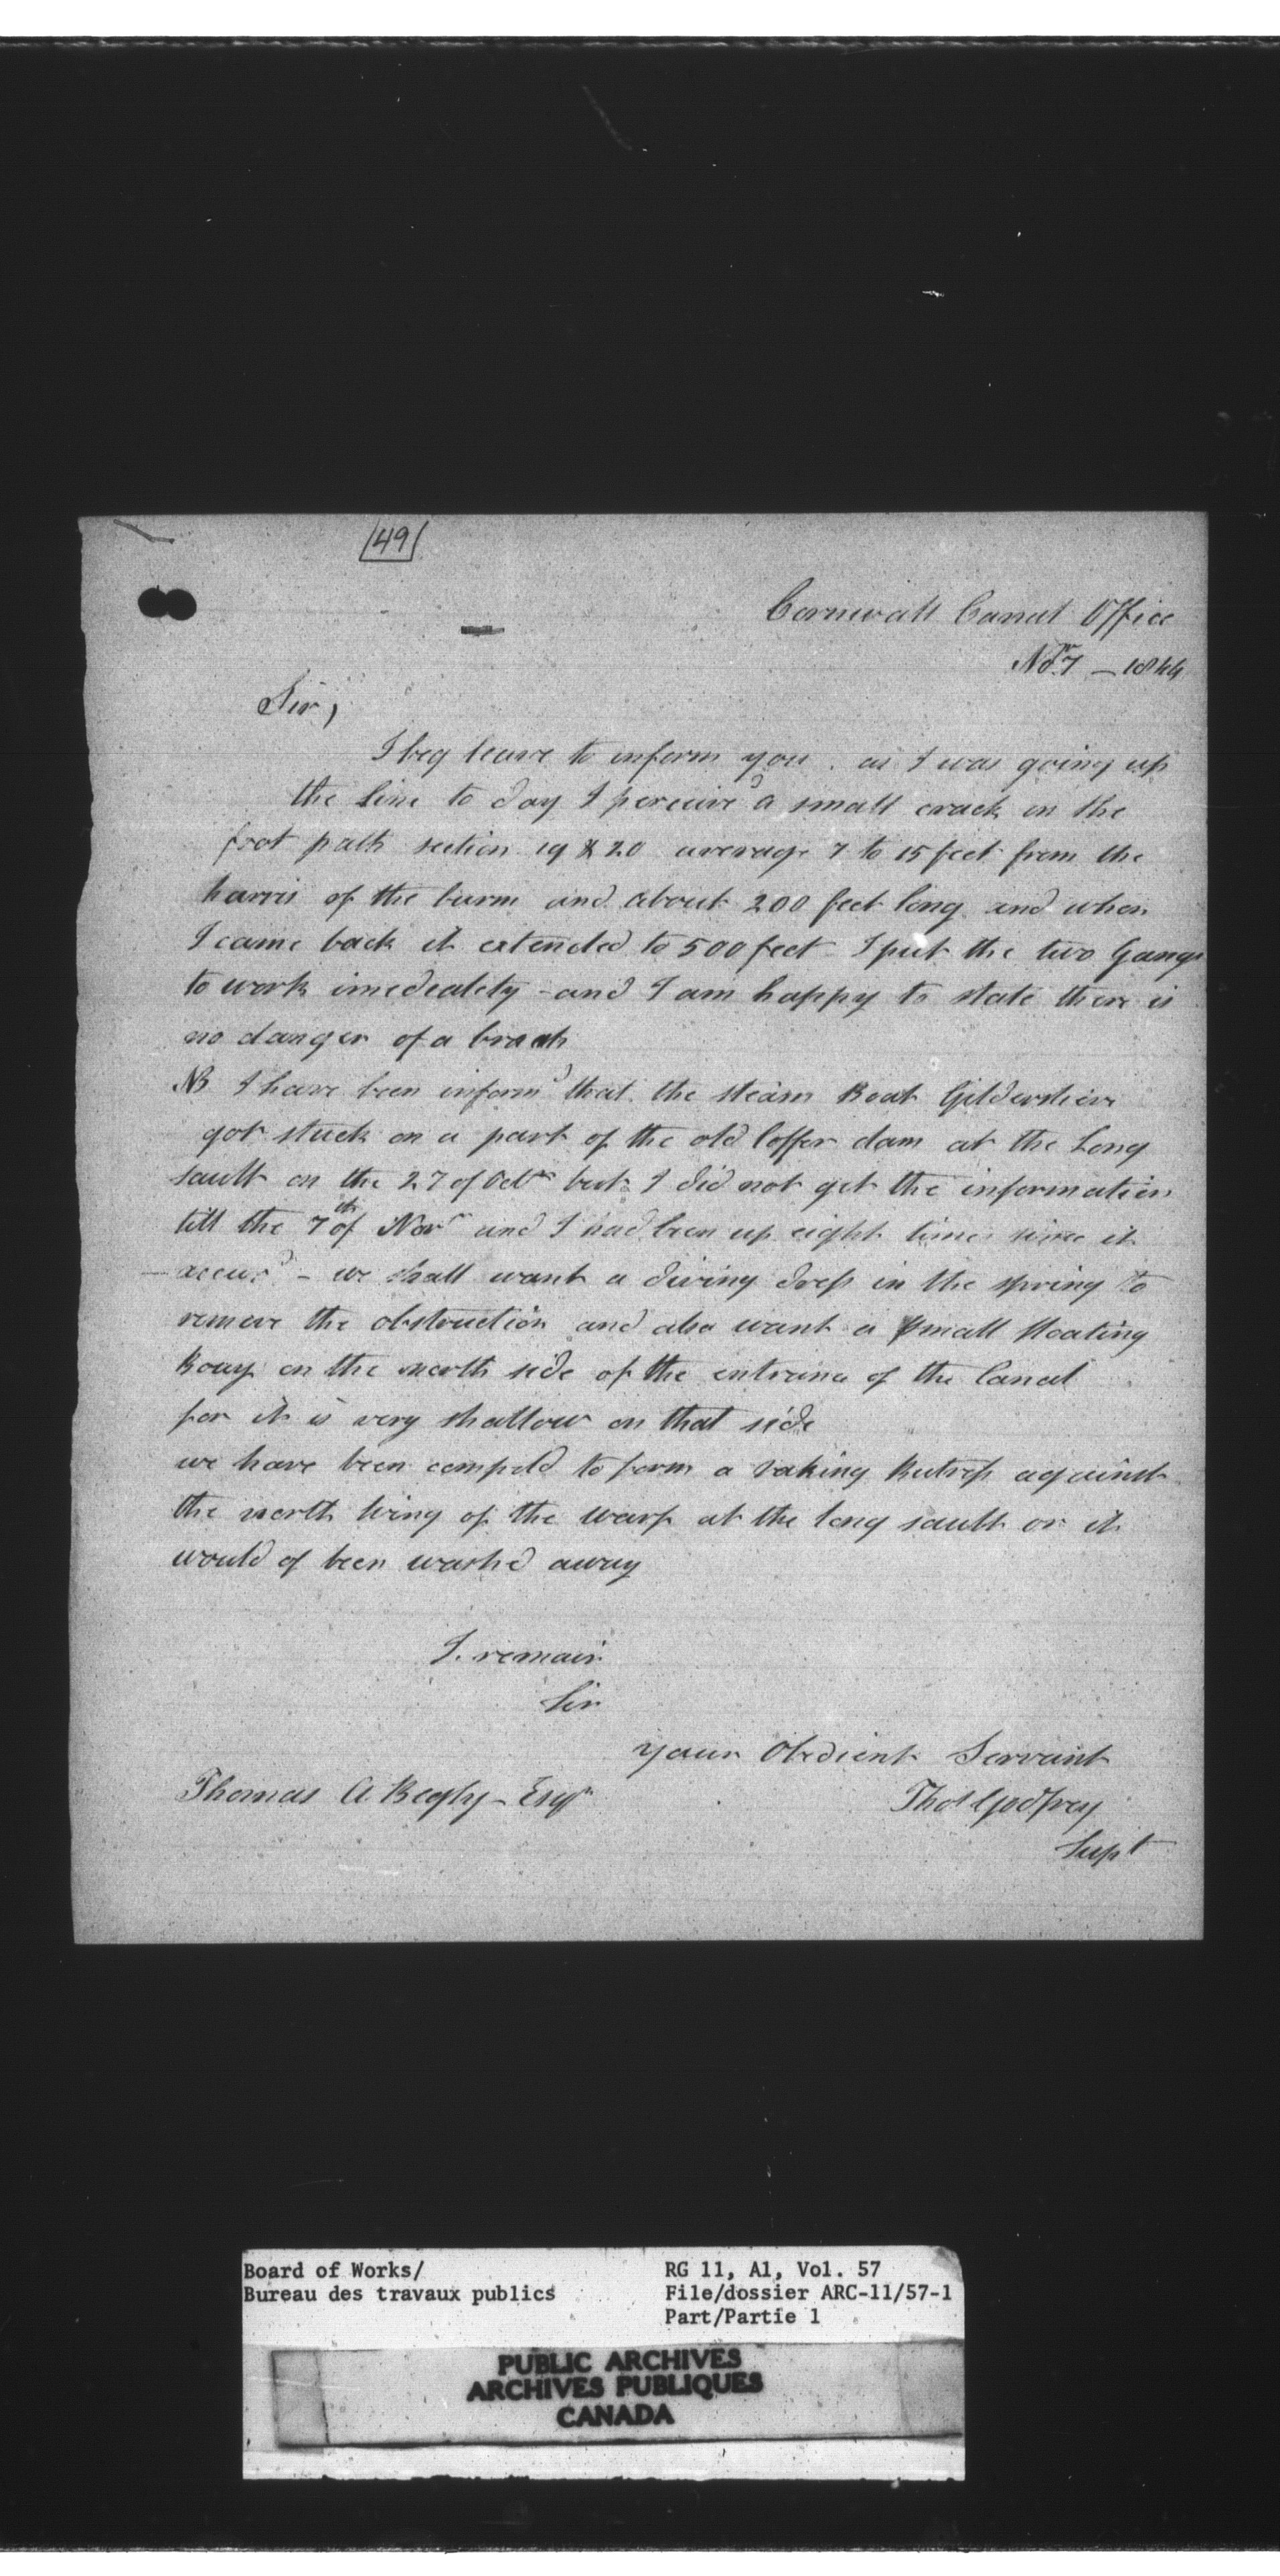 /49/
Cornwall Canal Office
Novr 7 – 1844
Sir,
I beg leave to inform you . as I was going up
the line to day I perceive'd a small crack in the
foot path section 19 & 20 average 7 to 15 feet from the
harris of the burm and about 200 feet long and when
I came back it extended to 500 feet I put the two Gangs
to work imedeatety – and I am happy to state there is
no danger of a breach
NB I have been inform'd that the steam Boat Gildersleive
got stuck on a part of the old Coffer dam at the Long
sault on the 27 of Octr but I did not get the information
till the 7th of Novr and I had been up eight times since it
accur'd – we shall want a diving dress in the spring to
remove the obstruction and also want a small floating
Bouy on the north side of the entrance of the Canal
for it is very shallow on that side
we have been compeld to form a raking Butress against
the north wing of the warf at the long sault or it
would of been washd away
I remain
Sir
your Obedient Servant
Thomas A Begly – Esqr
Thos Godfrey
Supt
Board of Works/
Bureau des travaux publics
RG 11, A1, Vol. 57
File/dossier ARC-11/57-1
Part/Partie 1
PUBLIC ARCHIVES
ARCHIVES PUBLIQUES
CANADA